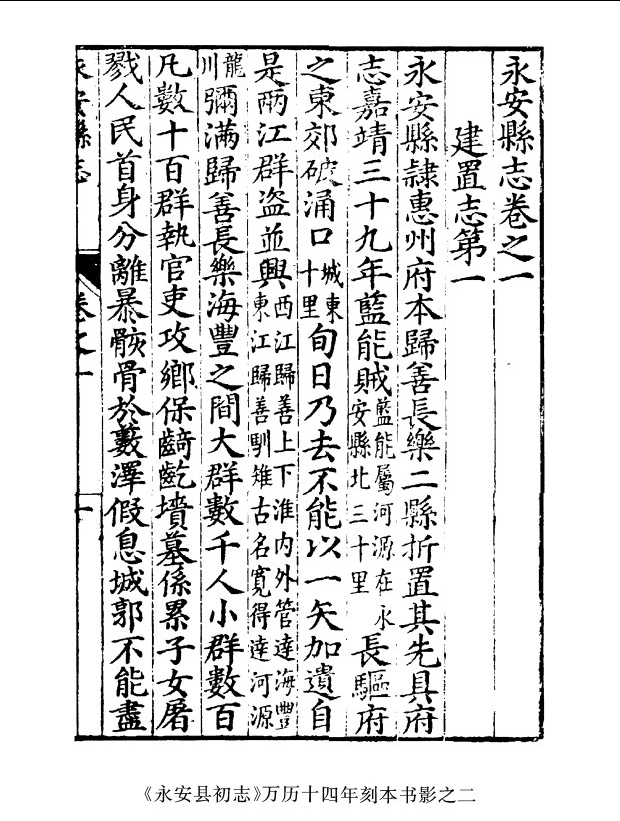 永安縣志卷之一
建置志第一
永安縣隷惠州府本歸善長樂二縣折置其先具府
志嘉靖三十九年藍能賊藍能屬河源在永安縣北三十里長驅府
之東郊破涌口城東十里旬日乃去不能以一矢加遺自
是兩江群盗並興西江歸善上下淮內外管達海豐東江歸善馴雉古名寬得達河源龍
川彌満歸善長樂海豐之間大群數千人小群數百
凡數十百群執官吏攻鄉保齮齕墳墓係累子女屠
戮人民首身分離暴骸骨於藪澤假息城郭不能盡
永安縣志 卷之一 一
《永安县初志》万历十四年刻本书影之二